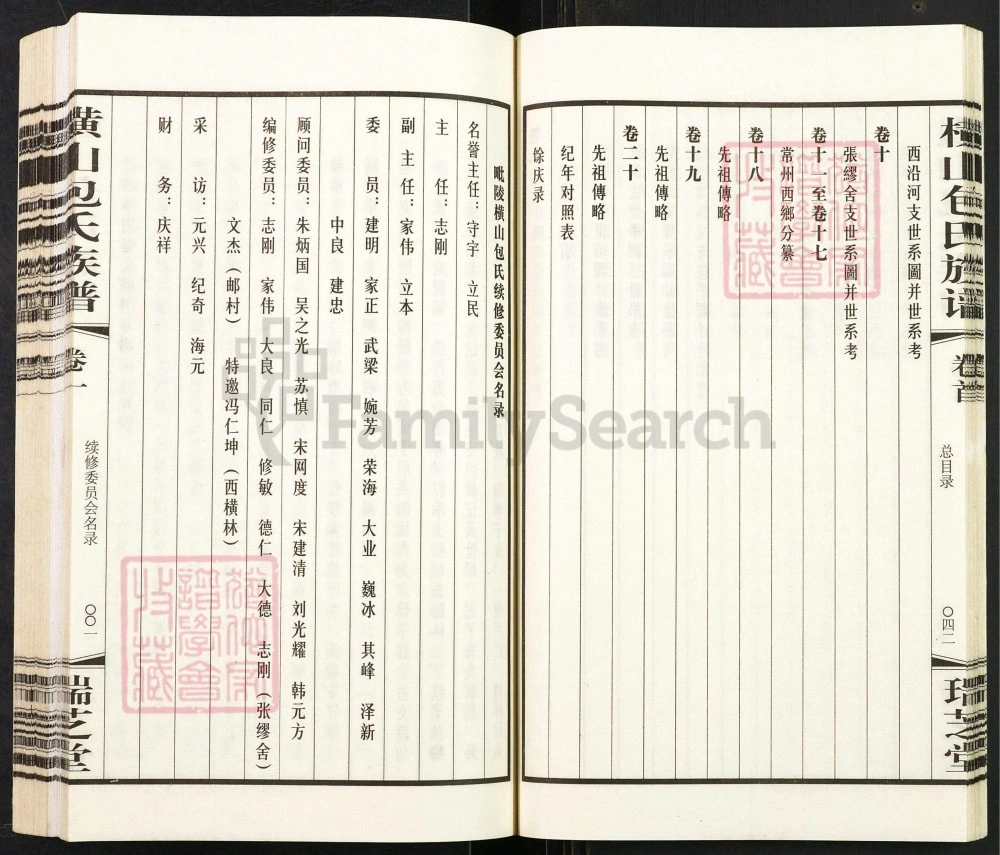 横山包氏族谱 卷首 总目录 〇四二 瑞芝堂
西沿河支世系圖并世系考
卷十
張繆舍支世系圖并世系考
卷十一至卷十七
常州西鄉分纂
卷十八
先祖傳略
卷十九
先祖傳略
卷二十
先祖傳略
纪年对照表
馀庆录
毗陵横山包氏续修委员会名录
名誉主任：守宇 立民
主任：志刚
副主任：家伟 立本
委员：建明 家正 武梁 婉芳 荣海 大业 巍冰 其峰 泽新
中良 建忠
顾问委员：朱炳国 吴之光 苏慎 宋网度 宋建清 刘光耀 韩元方
编修委员：志刚 家伟 大良 同仁 修敏 德仁 大德 志刚（张缪舍）
文杰（邮村） 特邀冯仁坤（西横林）
采访：元兴 纪奇 海元
财务：庆祥
横山包氏族谱 卷一 续修委员会名录 〇〇一 瑞芝堂
FamilySearch